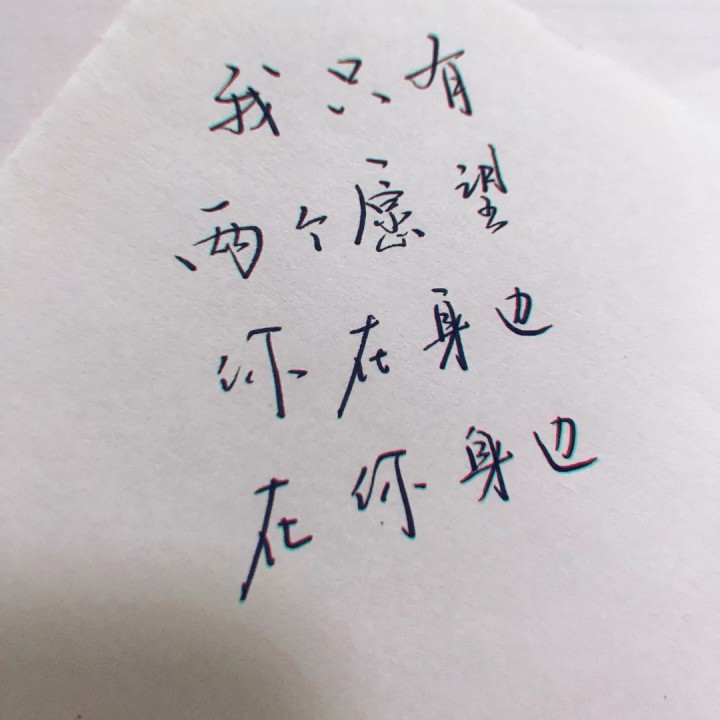 我只有
两个愿望
你在身边
在你身边